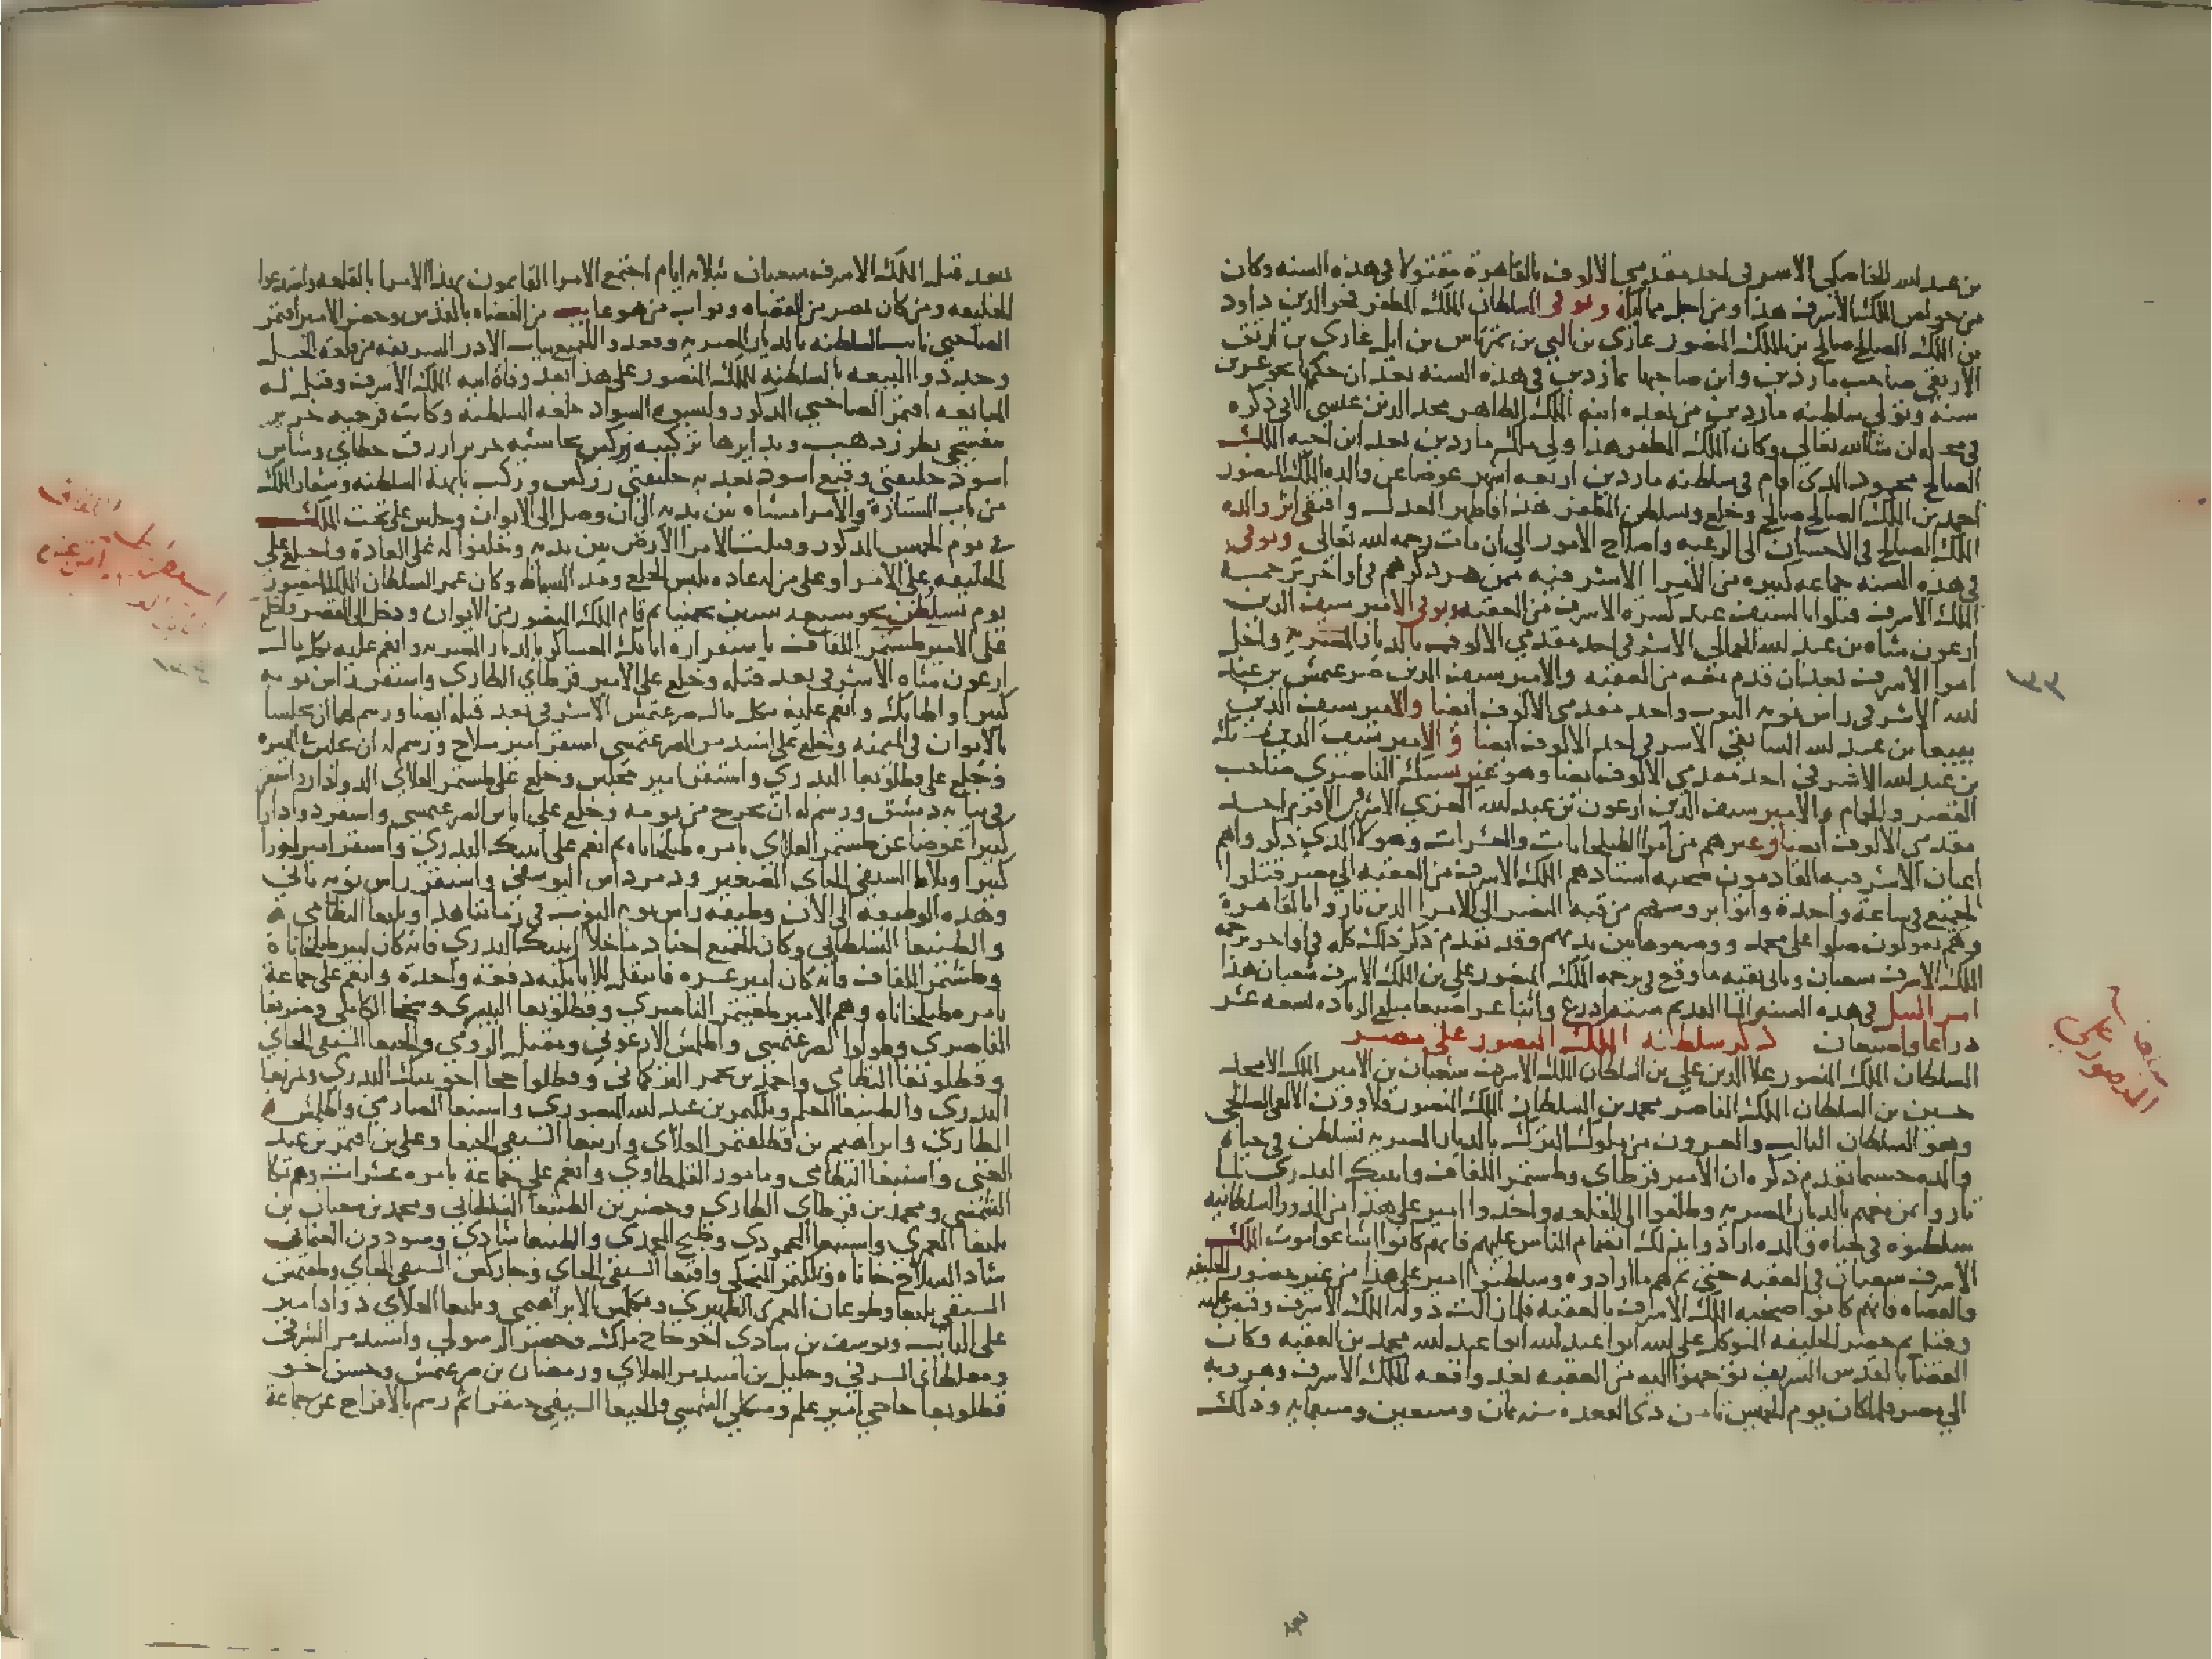 بن عبد الله الخاصكي الاشرفي احد مقدمي الالوف بالقاهرة مقتولا في هذه السنه وكان
من خواص الملك الاشرف هذا ومن اجل مماليكه وتوفي السلطان الملك المظفر فخر الدين داود
بن الملك الصالح صالح بن الملك المنصور غازي بن البي بن تمرتاش بن ايل غازي بن ارتق
الارتقي صاحب ماردين وابن صاحبها بماردين في هذه السنه بعد ان حكمها نحو عشرين
سنه وتولي سلطنه ماردين من بعده ابنه الملك الظاهر مجد الدين عيسى الاتي ذكره
في محله ان شاالله تعالى وكان الملك المظفر هذا ولي ملك ماردين بعد ابن اخيه الملك
الصالح محمود الذي اقام في سلطنه ماردين اربعه اشهر عوضا عن والده الملك المنصور
احمد بن الملك الصالح صالح وخلع وتسلطن المظفر هذا فاظهر العدل واقتفى اثر والده
الملك الصالح في الاحسان الى الرعيه واصلاح الامور الي ان مات رحمه الله تعالى وتوفي
في هذه السنه جماعه كبيره من الامرا الاشرفيه ممن مر ذكرهم في اواخر ترجمه
الملك الاشرف قتلوا بالسيف عند كسره الاشرف من العقبه وتوفي الامير سيف الدين
ارغون شاه بن عبد الله الجمالي الاشرفي احد مقدمي الالوف بالديار المصريه واجل
امرا الاشرف بعد ان قدم معه من العقبه والامير سيف الدين صرغتمش بن عبد
الله الاشرفي راس نوبه النوب واحد مقدمي الالوف ايضا والامير سيف الدين
بيبغا بن عبد الله السابقي الاشرفي احد الالوف ايضا والامير سيف الدين بشتك
بن عبد الله الاشرفي احد مقدمي الالوف ايضا وهو غير بشتك الناصري صاحب
القصر والحمام والامير سيف الدين ارغون بن عبد الله العزي الاشرفي الافرم احد
مقدمي الالوف ايضا وغيرهم من امرا الطبلخانات والعشرات وهولا الذي ذكروا هم
اعيان الاشرفيه القادمون صحبه استادهم الملك الاشرف من العقبه الي مصر فقتلوا
الجميع في ساعة واحدة واتوا بروسهم من قبه النصر الى الامرا الذين ثاروا بالقاهرة
وهم يقولون صلوا على محمد ووضعوها بين يديهم وقد تقدم ذكر ذلك كله في اواخر ترجمه
الملك الاشرف شعبان وياتي بقيه ما وقع في ترجمه الملك المنصور علي بن الملك الاشرف شعبان هذا
امر النيل في هذه السنه الما القديم سته اذرع واثنا عشر اصبعا مبلغ الزياده تسعه عشر
ذراعا واصبعان ذكر سلطنه الملك المنصور علي على مصر
السلطان الملك المنصور علا الدين علي بن السلطان الملك الاشرف شعبان بن الامير الملك الامجد
حسين بن السلطان الملك الناصر محمد بن السلطان الملك المنصور قلاوون الالفي الصالحي
وهو السلطان الثالث والعشرون من ملوك الترك بالديار المصريه تسلطن في حياه
والده حسبما تقدم ذكره ان الامير قرطاي وطشتمر اللفاف واينبك البدري لما
ثاروا بمن معهم بالديار المصريه وطلعوا الى القلعه واخذوا امير علي هذا من الدور السلطانيه
سلطنوه في حياه والده ارادوا بذلك انضمام الناس عليهم فانهم كانوا اشاعوا موت الملك
الاشرف شعبان في العقبه حتى تم لهم ما ارادوه وسلطنوا امير علي هذا من غير حضور الخليفه
والقضاه فانهم كانوا صحبه الملك الاشرف بالعقبه فلما زالت دوله الملك الاشرف وقبض عليه
وقتل ثم حضر الخليفه المتوكل على الله ابو عبد الله محمد من العقبه وكان
القضا بالقدس الشريف توجهوا اليه من العقبه بعد واقعه الملك الاشرف وهروبه
الي مصر فلما كان يوم الخميس ثامن ذي القعده سنه ثمان وسبعين وسبعمايه وذلك
بعد قتل الملك الاشرف شعبان بثلاثه ايام اجتمع الامرا القايمون بهذا الامر بالقلعه واستدعوا
الخليفه ومن كان بمصر من القضاه ونواب من هو غايب من القضاه بالقدس وحضر الامير اقتمر
الصاحبي نايب السلطنه بالديار المصريه وقعد والجميع بباب الادر الشريفه من قلعه الجبل
وجددوا البيعه بالسلطنه للملك المنصور علي هذا بعد وفاة ابيه الملك الاشرف وقبل له
المبايعه اقتمر الصاحبي المذكور ولبسوه السواد خلعه السلطنه وكانت فرجيه حرير
بنفسجي بطرز ذهب وبدايرها تركيبه زركش بحاشيه حرير ازرق خطاي وشاش
اسود خليفتي وقبع اسود بعدبه خليفتي زركش وركب بابهة السلطنه وشعار الملك
من باب الستارة والامرا مشاه بين يديه الى ان وصل الى الايوان وجلس على تخت الملك
في يوم الخميس المذكور وقبلت الامرا الارض بين يديه وحلفوا له على العادة واخلع على
الخليفه وعلى الامرا وعلى من له عاده بلبس الخلع ومد السماط وكان عمر السلطان الملك المنصور
يوم تسلطن نحو سبع سنين تخمينا ثم قام الملك المنصور من الايوان ودخل الى القصر واخلع
على الامير طشتمر اللفاف باستقراره اتابك العساكر بالديار المصريه وانعم عليه بكل مال
ارغون شاه الاشرفي بعد قتله وخلع على الامير قرطاي الطازي واستقر راس نوبه
كبيرا واطابك وانعم عليه بكل مال صرغتمش الاشرفي بعد قتله ايضا ورسم لهما ان يجلسا
بالايوان في الميمنه وخلع على اسندمر الصرغتمشي استقر امير سلاح ورسم له ان يجلس في الميسره
وخلع على قطلوبغا البدري واستقر امير مجلس وخلع على طشتمر العلاي الدوادار واستقر
في نيابه دمشق ورسم له ان يخرج من يومه وخلع على اياس الصرغتمشي واستقر دوادارا
كبيرا عوضا عن طشتمر العلاي بامره طبلخاناه ثم انعم على اينبك البدري واستقر امير اخورا
كبيرا وبلاط السيفي الجاي الصغير ودمرداش اليوسفي واستقر راس نوبه ثاني
وهذه الوظيفه الى الان وظيفه راس نوبه النوب في زماننا هذا ويلبغا النظامي
والطنبغا السلطاني وكان الجميع اجنادا ما خلا اينبك البدري فانه كان امير طبلخاناة
وطشتمر اللفاف فانه كان امير عشره فانتقل للاتابكيه دفعه واحدة وانعم على جماعة
بامره طبلخاناه وهم الامير طغيتمر الناصري وقطلوبغا البيسري وبيخجا الكاملي وصربغا
الناصري وطولوا الصرغتمشي واطلمش الارغوني ومقبل الرومي والجيبغا السيفي الجاي
وقطلوبغا النظامي واحمد بن يحمر التركماني وقطلوا خجا اخو اينبك البدري وتمربغا
البدري والطنبغا المعلم وتلكتمر بن عبد الله المنصوري واسنبغا الصارمي واطلمش
الطازي وابراهيم بن قطلقتمر العلاي واربغا السيفي الجيبغا وعلي بن اقتمر بن عبد
الغني واسنبغا النظامي ومامور القلمطاوي وانعم على جماعة بامره عشرات وهم تكا
الشمسي ومحمد بن قرطاي الطازي وخضر بن الطنبغا السلطاني ومحمد بن شعبان بن
يلبغا العمري واسنبغا المحمودي وطبج المحمدي والطنبغا شادي وسودون العثماني
شاد السلاح خاناه وتلكتمر المنجكي واقبغا السيفي الجاي وجاركس السيفي الجاي وطقتمش
السيفي يلبغا وطوغان العمري الظهيري وبكلمش الابراهيمي ويلبغا العلاي دوادار امير
علي النايب ويوسف بن شادي اخو حاج ملك وخضر الرسولي واسندمر الشرفي
ومغلطاي الشرفي وخليل بن اسندمر العلاي ورمضان بن صرغتمش وحسن اخو
قطلوبغا حاجي امير علم ومنكلي الشمسي والجيبغا السيفي جنقرا ثم رسم بالافراج عن جماعة